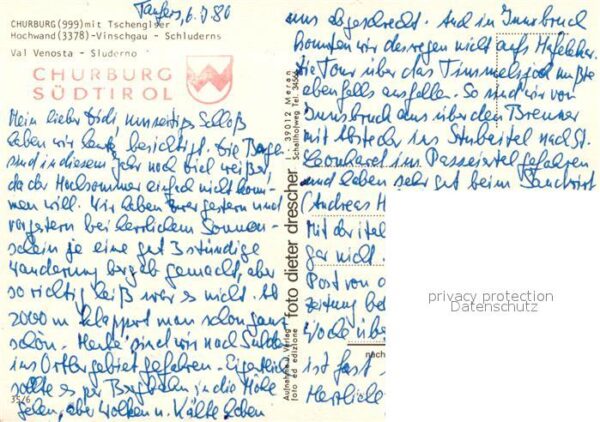 Taufers, 6.7.80
CHURBURG(999)mit Tschenglser
Hochwand(3378)-Vinschgau - Schluderns
Val Venosta - Sluderno
CHURBURG
SÜDTIROL
Mein lieber Didi, unseitiges Schloß
haben wir heute besichtigt. Die Berge
sind in diesem Jahr noch viel weißer,
da der Hochsommer einfach nicht kom-
men will. Wir haben zwar gestern und
vorgestern bei herrlichem Sonnen-
schein je eine gut 3 stündige
Wanderung bergab gemacht, aber
so richtig heiß war es nicht. Ab
2000 m klappert man schon ganz
schön. Heute sind wir nach Sulden
ins Ortlergebiet gefahren. Eigentlich
sollte es per Bergbahn in die Höhe
gehen, aber Wolken u. Kälte haben
35/6
Aufnahme u. Verlag
foto ed edizione
foto dieter drescher
I - 39012 Meran
Schallhofweg Tel. 34504
uns abgeschreckt. Auch in Innsbruck
konnten wir deswegen nicht aufs Hafelekar.
Die Tour über das Timmelsjoch mußte
ebenfalls ausfallen. So sind wir von
Innsbruck aus über den Brenner
mit Abstecher ins Stubaital nach St.
Leonhard im Passeiertal gefahren
und haben sehr gut beim Sandwirt
(Andreas H
Mit der ital
gar nicht.
Post von
zeitung be
Woche übe
nach
ist fast
Herzliche
privacy protection
Datenschutz